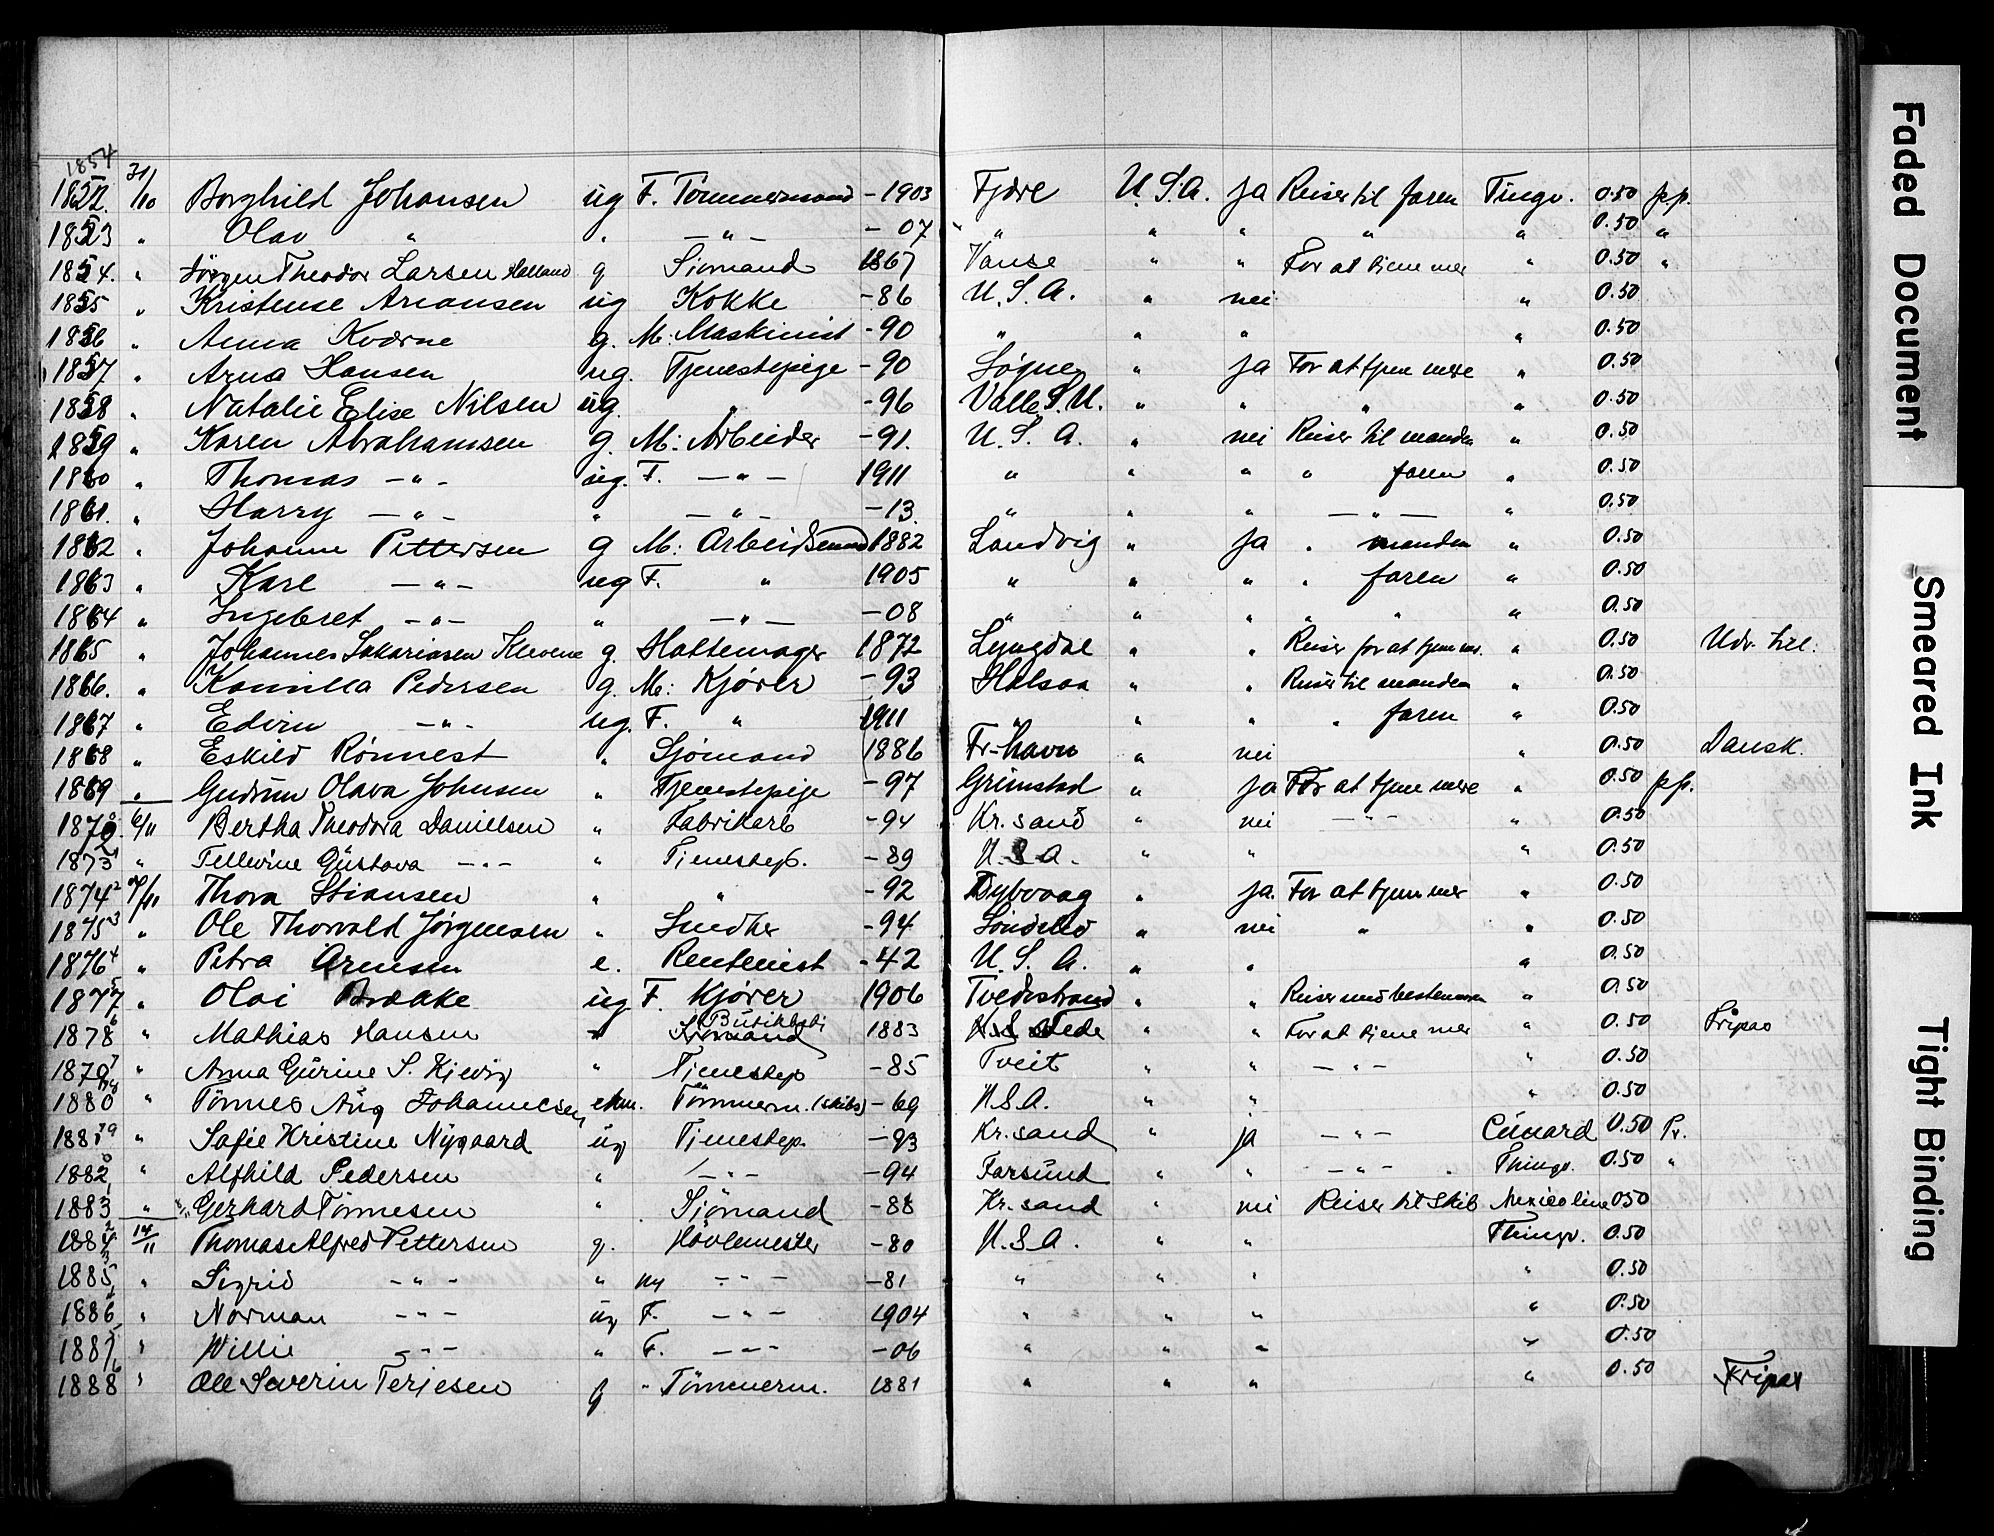 1854
1852. 31/10 Borghild Johansen ug F. Tømmermand - 1903 Fjære U.S.A. ja Reiser til faren Tingv. 0.50 pp.
1853 " Olav " " — " — - 07 " " " " " 0.50 "
1854. " Jørgen Theodor Larsen Halland g Sjømand 1867 Vanse " " For at tjene mer " 0.50 "
1855 " Kristense Arionsen ug Kokke - 86 U.S.A. " nei " 0.50
1856 " Anna Kvarne g. M: Maskinist - 90 " " " " 0.50
1857 " Arna Hansen ug. Tjenestepige - 90 Søgne " ja For at tjene mere " 0.50
1858 " Natalie Elise Nilsen ug. " - 96 Valle S.U. " " " " 0.50
1859 " Karen Abrahamsen g. M: Arbeider - 91. U.S.A. " nei Reiser til manden " 0.50
1860 " Thomas — " — ug. F. — " — 1911 " " " " faren " 0.50
1861. " Harry — " — " — " — - 13. " " " — " — " 0.50
1862 " Johanne Pettersen g M: Arbeidsmand 1882 Landvig " ja " manden " 0.50
1863 " Karl — " — ug F. " 1905 " " " " faren " 0.50
1864 " Ingebret — " — " — " — - 08 " " " " " " 0.50
1865 " Johannes Sakariasen Klevene g. Hattemager 1872 Lyngdal " " Reiser for at tjene mer. " 0.50 Udv. till.
1866. " Kamilla Pedersen g. M: Kjører - 93 Halsaa " " Reiser til manden " 0.50
1867 " Edvin — " — ug. F. " 1911 " " " " faren " 0.50
1868 " Eskild Rønnest " Sjømand 1886 Fr-havn " nei " 0.50 Dansk.
1869 " Gudrun Olava Johnsen " Tjenestepige - 97 Grimstad " ja For at tjene mere " 0.50 pp.
1870 6/11 Bertha Theodora Danielsen " Fabrikarb - 94 Kr.sand " nei — " — " 0.50
1873 1 " Tellevine Gustava — " — " Tjenestep. - 89 U.S.A. " " " 0.50
1874 2 7/11 Thora Stiansen " " - 92 Dybvaag " ja. For at tjene mer " 0.50
1875 3 " Ole Thorvald Jørgensen " Smedker - 94 Søndeled " nei " " 0.50
1876 4 " Petra Arnesen e. Rentenist - 42 U.S.A. " " " 0.50
1877 5 " Olai Braake ug F. Kjører 1906 Tvedestrand " " Reiser med bestemoren " 0.50
1878 6 " Mathias Hansen " Butikbetj 1883 Fede " " For at tjene mer " 0.50 Fripas
1879 7 " Anna Gurine S. Kjevig " Tjenestep - 85 Tveit " " — " — " 0.50
1880 78 " Tønnes Aug Johannesen ekm. Tømmerm. (skibs) - 69 U.S.A. " " " 0.50
1881 79 " Sofie Kristine Nygaard ug Tjenestep. - 93 Kr.sand " ja — " — Cunard 0.50 Pr.
1882 0 " Alfhild Pedersen " — " — - 94 Farsund " " — " — Thingv. 0.50 "
1883 1 " Gerhard Tønnesen " Sjømand - 88 Kr.sand " nei Reiser til Skib Mexicoline 0.50
1884 2 14/11 Thomas Alfred Pettersen g. Høvlemester - 80 U.S.A. " " Thingv. 0.50
1885 3 " Sigrid — " — " M — " — - 81 " " " " 0.50
1886 4 " Norman — " — ug F. — " — 1904 " " " " 0.50
1887 5 " Willie — " — " F. — " — - 06 " " " " 0.50
1888 6 " Ole Severin Terjesen g " Tømmerm. 1881 " " " " 0.50 Fripas
Faded Document
Smeared Ink
Tight Binding